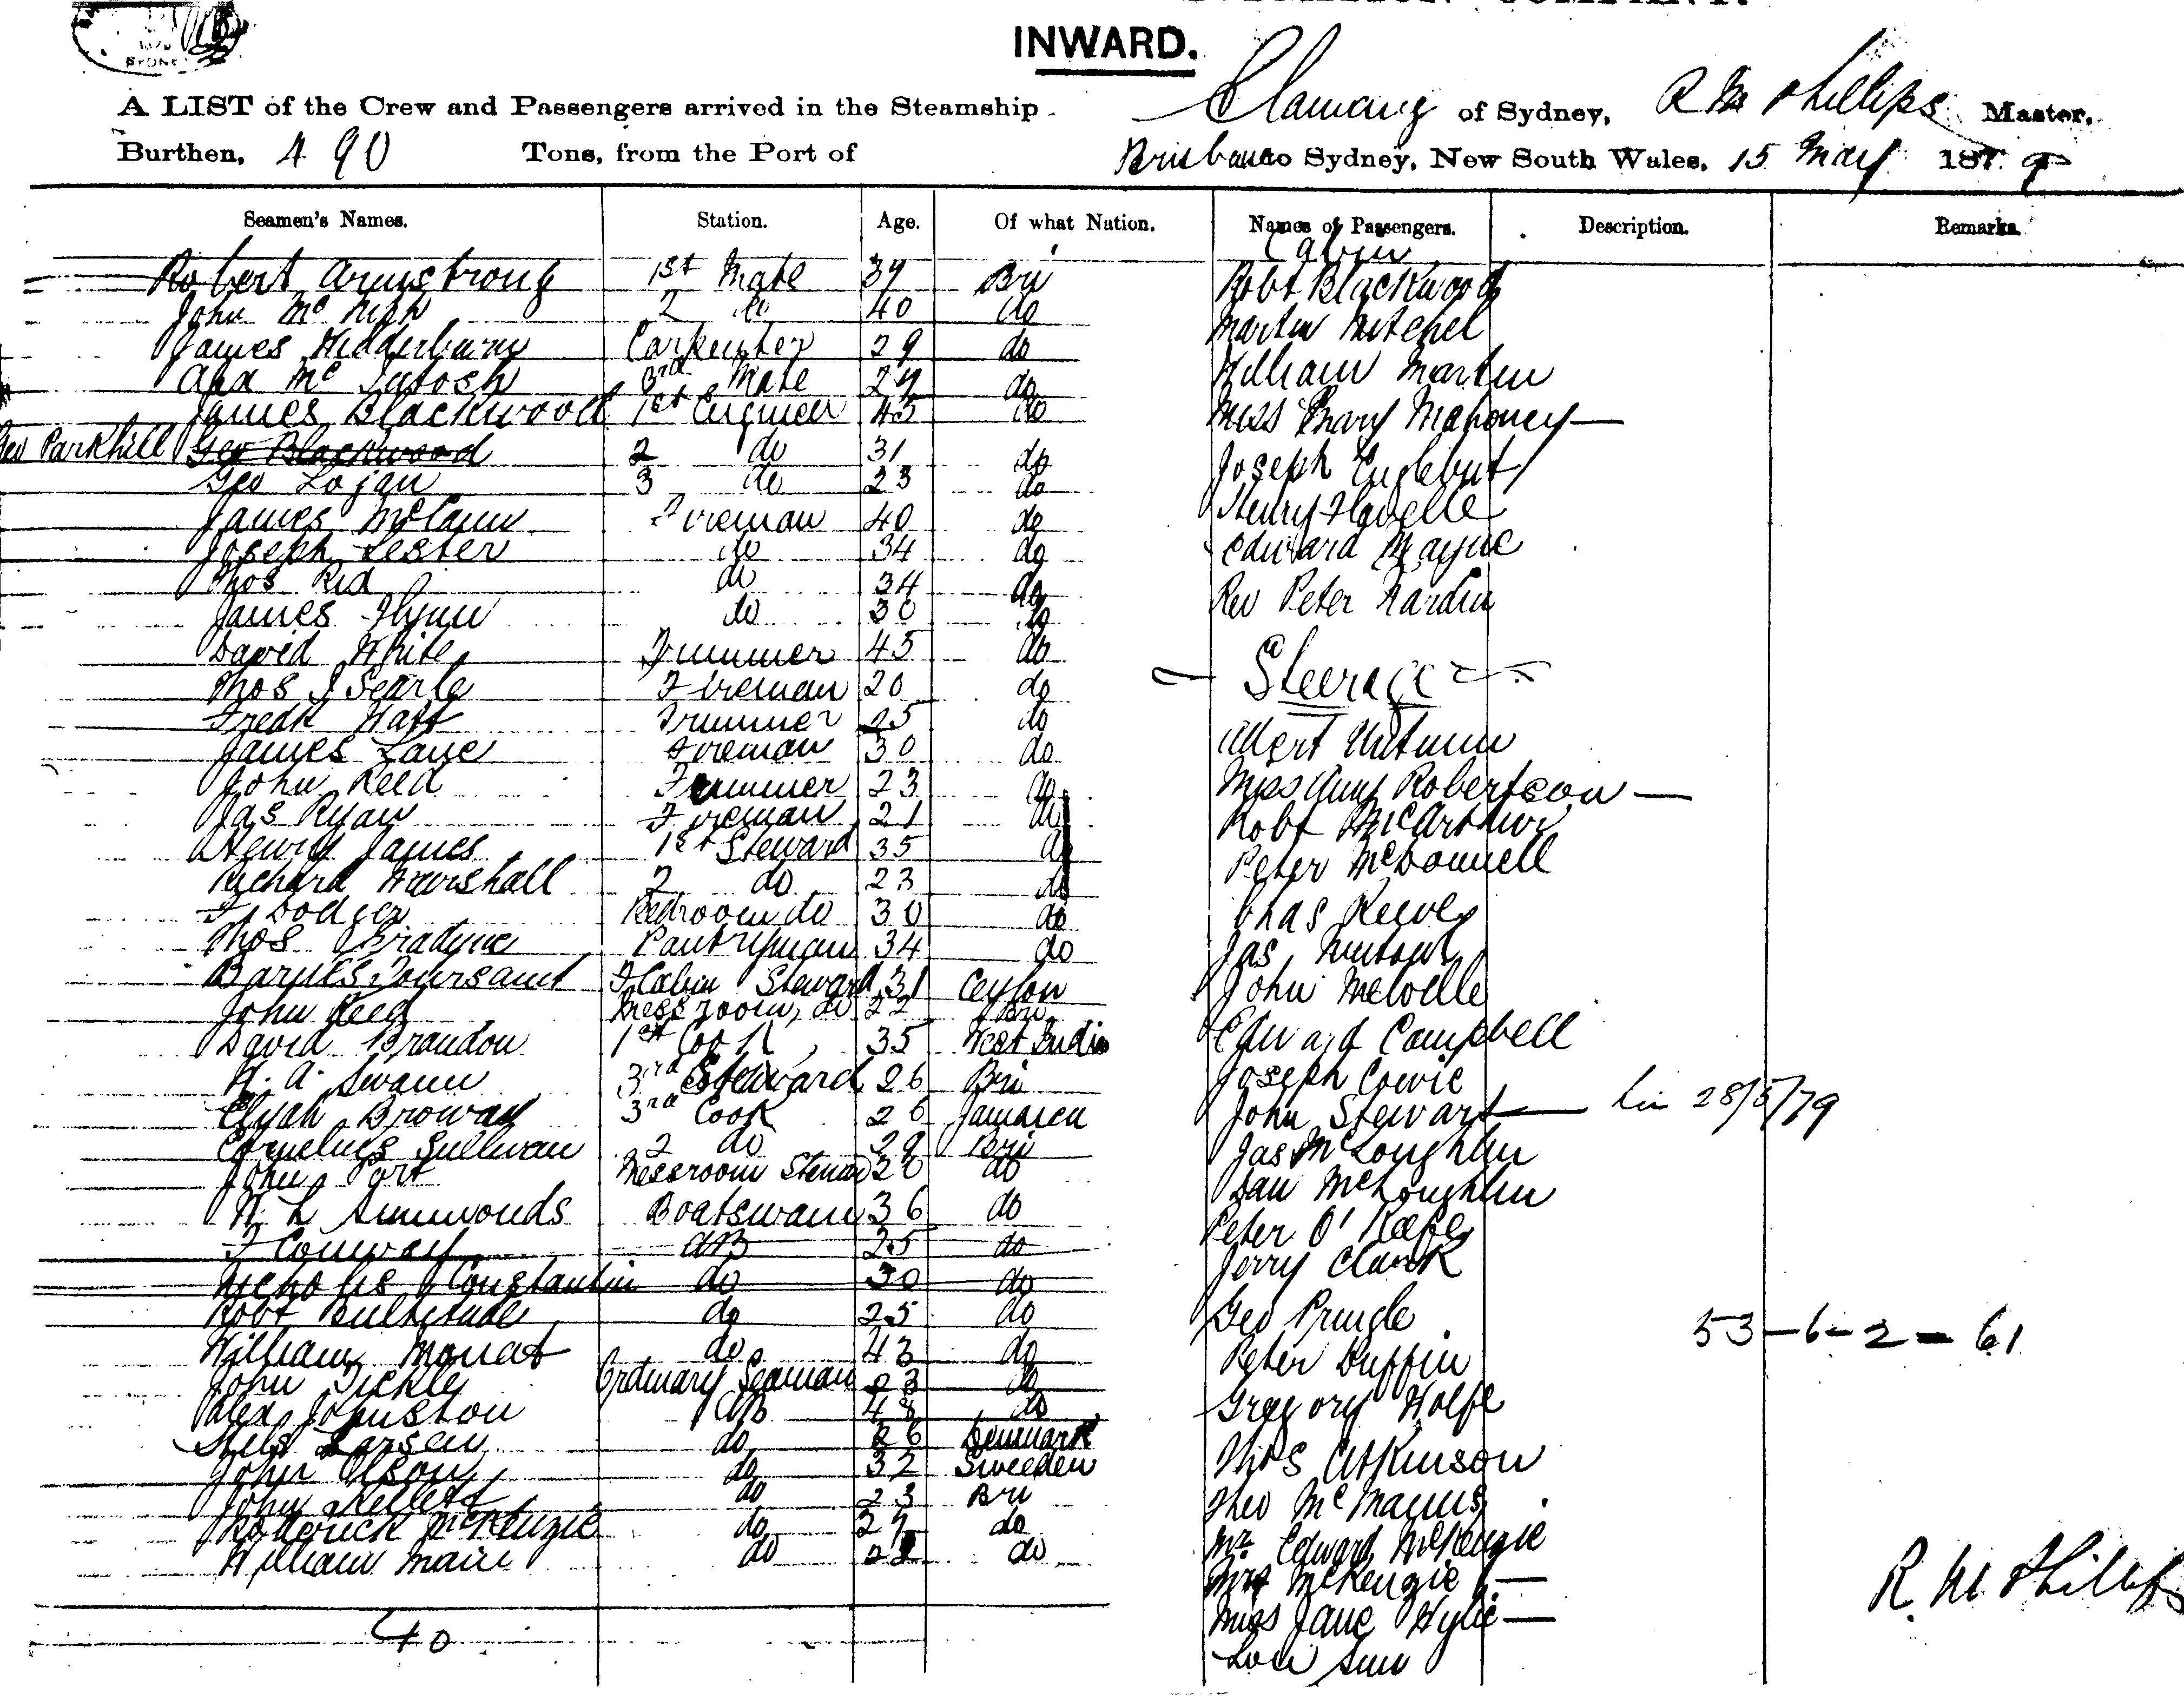 INWARD.
A LIST of the Crew and Passengers arrived in the Steamship of Sydney, R M Phillips Master,
Burthen, 490 Tons, from the Port of Brisbane to Sydney, New South Wales, 15 May 1879
Seamen's Names. Station. Age. Of what Nation. Names of Passengers. Description. Remarks.
Cabin
Robert Armstrong 1st Mate 39 Bri Robt Blackwood
John Mc 2 do 40 do Martin Mitchel
James Hedderburn Carpenter 29 do William Martin
Alex Mc Intosh 3rd Mate 27 do
James Blackwood 1st Engineer 45 do Miss Mary Mahoney —
Geo Parkhill Geo Blackwood 2 do 31 do Joseph
Geo Logan 3 do 23 do Henry
James McCann Fireman 40 do Edward Mayne
Joseph Lester do 34 do
Thos Rid do 34 do Rev Peter Hardin
James Flynn do 30 do
David White Trimmer 45 do Steerage
Thos J Searle Fireman 20 do
Fredk Hatt Trimmer 25 do Albert
James Lane Fireman 30 do
John Reed Trimmer 23 do Miss Amy Robertson —
Jas Ryan Fireman 21 do Robt McArthur
Henry James 1st Steward 35 do Peter McDonnell
Richard Marshall 2 do 23 do
F Dodger Bedroom do 30 do Chas Reeve
Thos Pantryman 34 do Jas
Barnes F Cabin Steward 31 Ceylon John Melville
John Reed Messroom do 22 Bri
David Brandon 1st Cook 35 West Indies Edward Campbell
H. A. Swann 3rd Steward 26 Bri Joseph Cowie
Elijah Broway 3rd Cook 26 Jamaica John Stewart — 28/5/79
Cornelius Sullivan 2 do 29 Bri Jas McLoughlin
John Port Messroom Steward 20 do Dan McLoughlin
H L Simmonds Boatswain 36 do Peter O'Keefe
F Conway AB 25 do Jerry Clark
Nicholas Constantin do 30 do
Robt Bultitude do 25 do Geo Pringle 53 — 6 — 2 — 61
William Mouat do 43 do Peter Duffin
John Tickle Ordinary Seaman 23 do Gregory Wolfe
Alex Johnston AB 48 do
Larsen do 26 Denmark Thos Atkinson
John Olson do 32 Sweeden
John Kellett do 23 Bri Theo McManus
Roderick McKenzie do 27 do Mr Edward McKenzie
William Main do 22 do Mrs McKenzie —
R. M Phillips
Miss Jane Wylie —
40